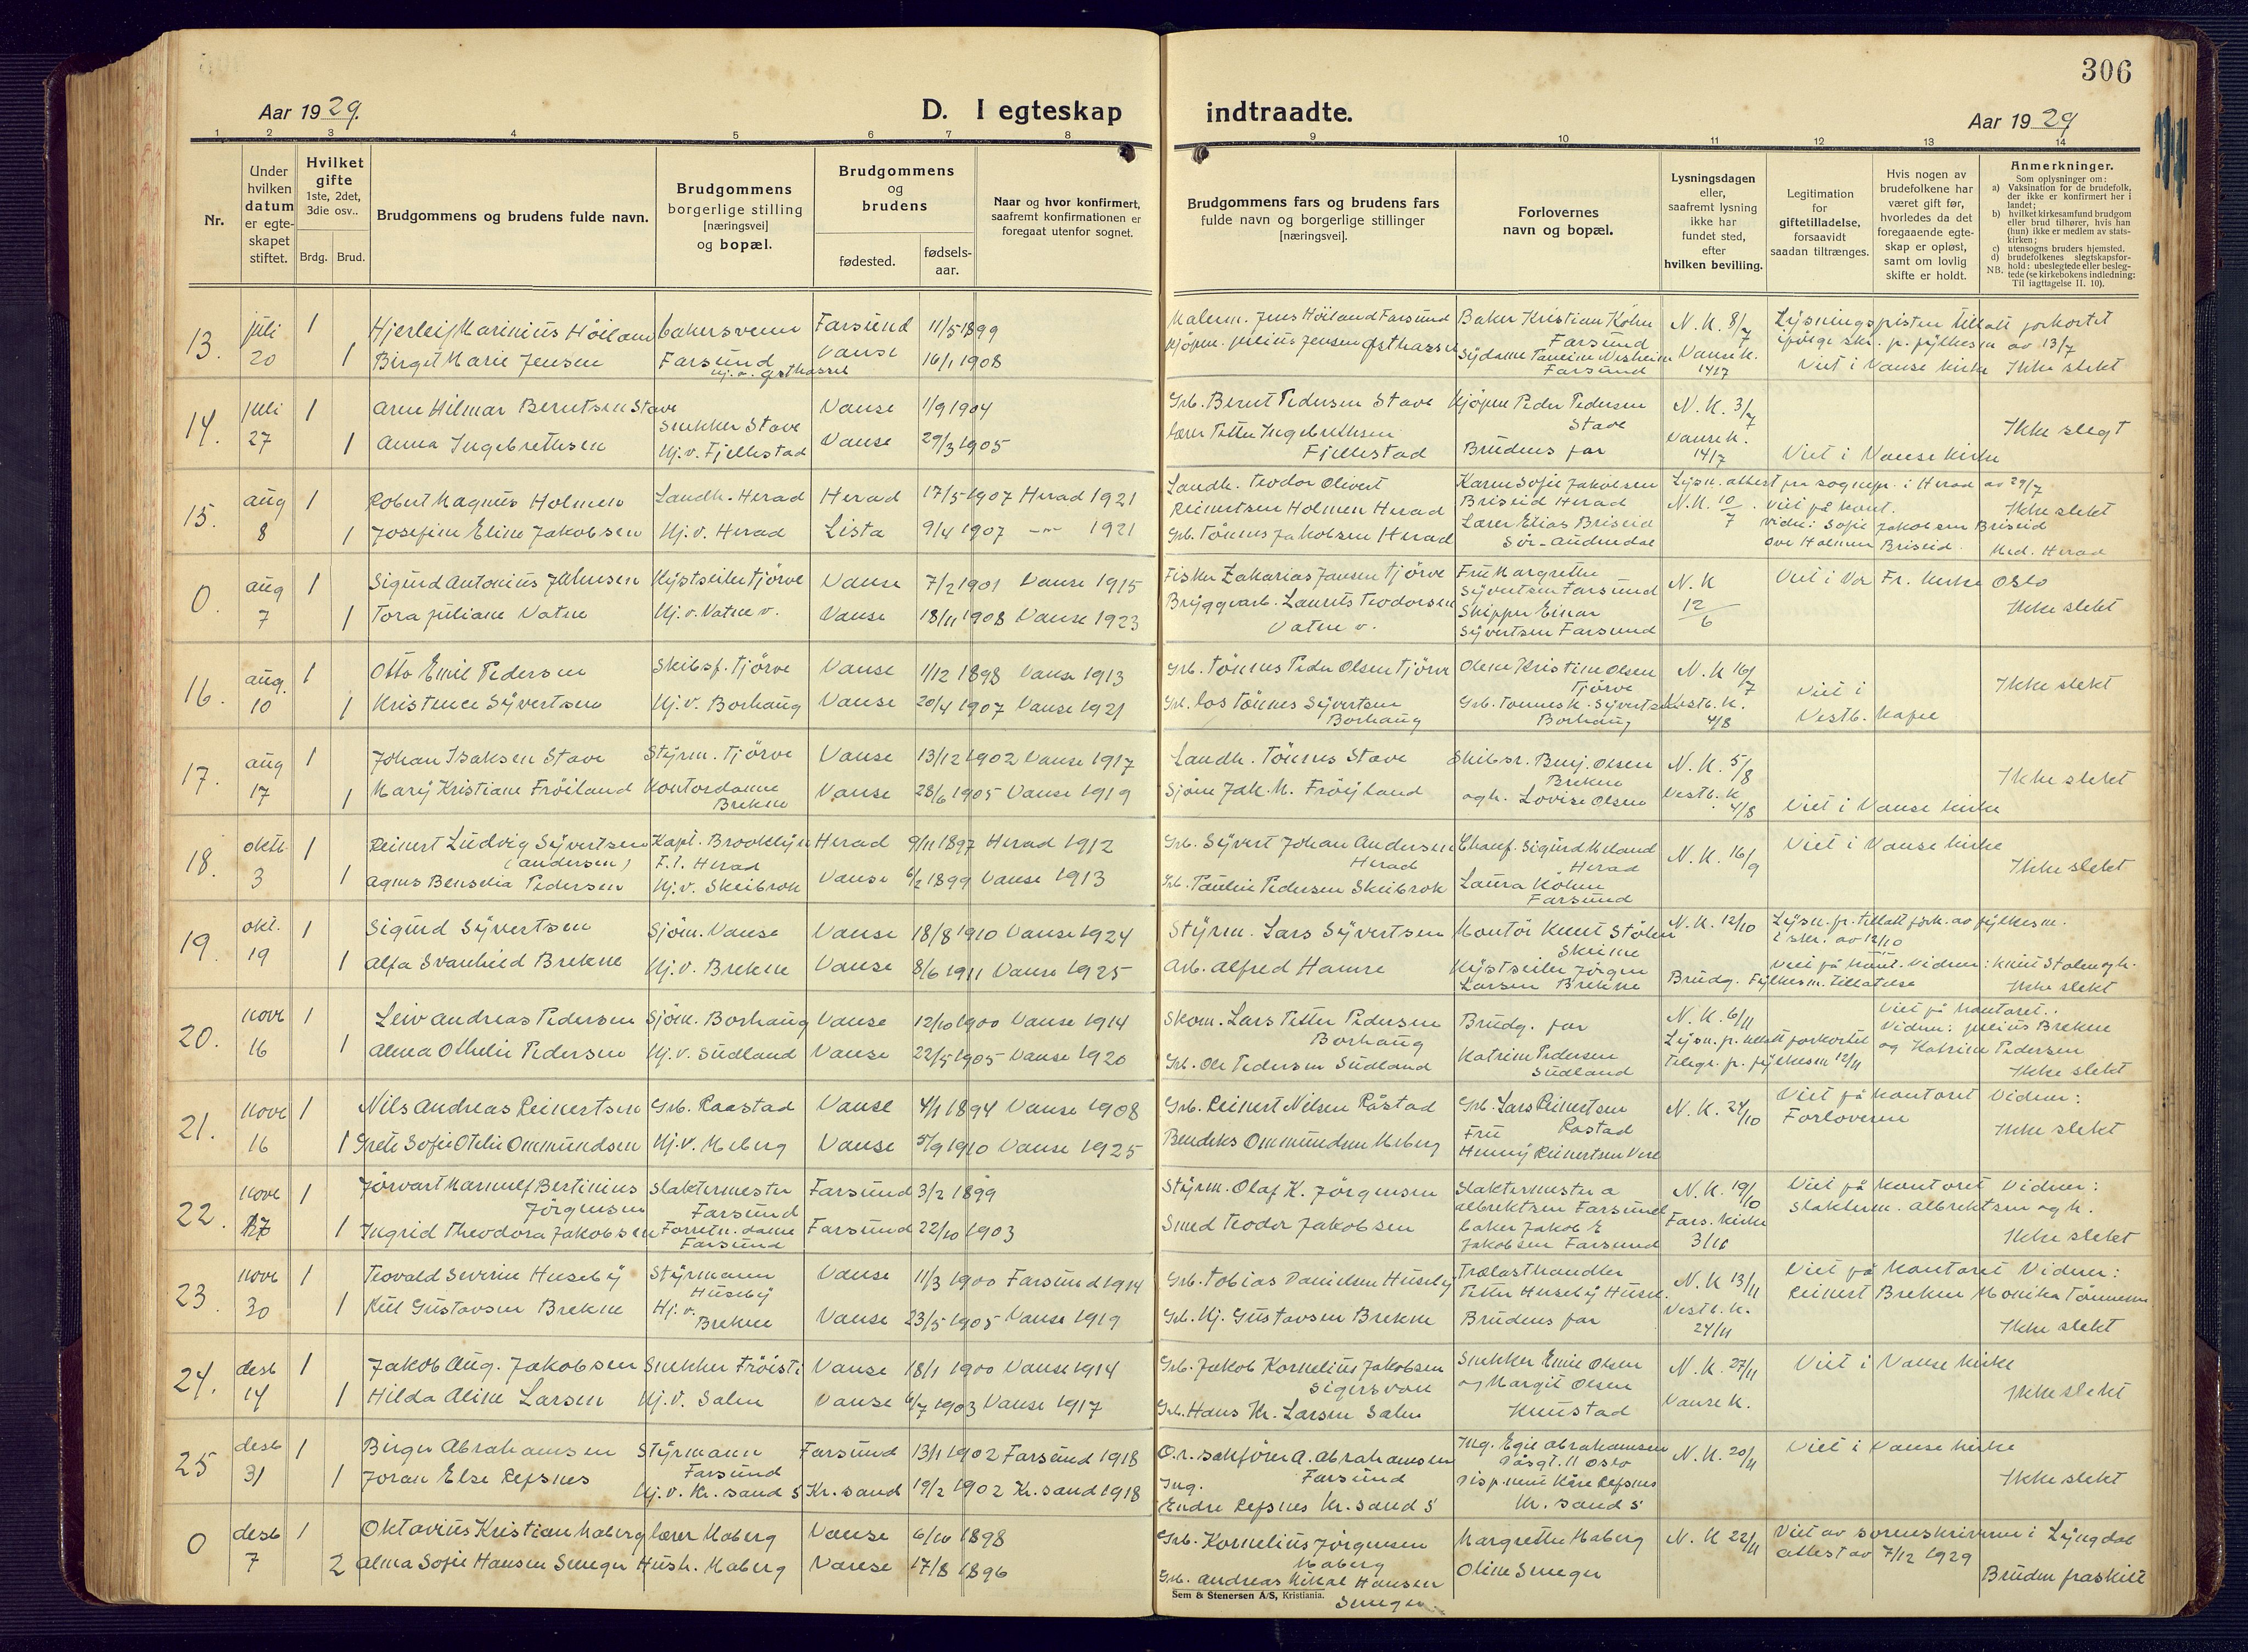 306
Aar 1929.
D. I egteskap
indtraadte.
Aar 1929
1 2 3 4 5 6 7 8 9 10 11 12 13 14
Nr.
Under hvilken datum er egteskapet stiftet.
Hvilket gifte 1ste, 2det, 3die osv..
Brdg. Brud.
Brudgommens og brudens fulde navn.
Brudgommens borgerlige stilling [næringsvei] og bopæl.
Brudgommens og brudens
fødested.
fødsels-aar.
Naar og hvor konfirmert, saafremt konfirmationen er foregaat utenfor sognet.
Brudgommens fars og brudens fars fulde navn og borgerlige stillinger [næringsvei].
Forlovernes navn og bopæl.
Lysningsdagen eller, saafremt lysning ikke har fundet sted, efter hvilken bevilling.
Legitimation for giftetilladelse, forsaavidt saadan tiltrænges.
Hvis nogen av brudefolkene har været gift før, hvorledes da det foregaaende egteskap er opløst, samt om lovlig skifte er holdt.
Anmerkninger.
Som oplysninger om:
a) Vaksination for de brudefolk, der ikke er konfirmert her i landet;
b) hvilket kirkesamfund brudgom eller brud tilhører, hvis han (hun) ikke er medlem av statskirken;
c) utensogns bruders hjemsted.
d) brudefolkenes slegtskapsforhold: ubeslegtede eller beslegtede (se kirkebokens indledning:
NB. Til iagttagelse II. 10).
13. juli 20 1 Hjerleif Marinius Höiland bakersvenn Farsund Farsund 11/5 1899 Malerm. Jens Höiland Farsund Baker Kristian Köhn Farsund N. K. 8/7 Lysningspristen tillatt forkortet
1 Birgit Marie Jensen Hj. v. Østhassel Vanse 16/1 1908 Kjöpm. Julius Jensen Østhassel Sydame Tomine Nesheim Farsund Vanse K. 14/7 ifölge skr. p. fylkesm av 13/7 Viet i Vanse kirke Ikke slekt
14. juli 27 1 Arne Hilmar Berntsen Stave Snekker Stave Vanse 1/9 1904 Grb. Bernt Pedersen Stave Kjöpm Peder Pedersen Stave N. K. 3/7
1 Anna Ingebrethsen Hj. v. Fjellestad Vanse 29/3 1905 Lærer Petter Ingebrethsen Fjellestad Brudens far Vanse K. 14/7 Viet i Vanse kirke Ikke slegt
15. aug 8 1 Robert Magnus Holmen Landh. Herad Herad 17/5 1907 Herad 1921 Landh. Teodor Olivert Reinertsen Holmen Herad Karen Sofie Jakobsen Briseid Herad N. K. 10/7 Lysn. attest fra sognepr. i Herad av 29/7
1 Josefine Eline Jakobsen Hj. v. Herad Lista 9/4 1907 -"- 1921 Grb. Tönnes Jakobsen Herad Lærer Elias Briseid Sör-Audnedal Viet på kont. Vidn: Sofie Jakobsen Briseid Ove Holmen Briseid. Med. Herad Ikke slekt
0. aug 7 1 Sigurd Antonius Johnsen Kystseiler Tjörve Vanse 7/2 1901 Vanse 1915 Fisker Zakarias Jansen Tjörve Fru Margrethe Syvertsen Farsund N. K 12/6 Viet i Vor Fr. kirke Oslo
1 Tora Juliane Vatne Hj. v. Vatne v. Vanse 18/11 1908 Vanse 1923 Bryggearb. Laurits Teodorsen Vatne v. Skipper Einar Syvertsen Farsund Ikke slekt
16. aug. 10 1 Otto Emil Pedersen Skibsf. Tjörve Vanse 1/12 1898 Vanse 1913 Grb. Tönnes Peder Olsen Tjörve Olene Kristine Olsen Tjörve N. K 16/7
1 Kristence Syvertsen Hj. v. Borhaug Vanse 20/4 1907 Vanse 1921 Grb. los Tönnes Syvertsen Borhaug Grb. Tönnes K. Syvertsen Borhaug Vestb. K. 4/8 Viet i Vestb. Kapel Ikke slekt
17. aug 17 1 Johan Isaksen Stave Styrm. Tjörve Vanse 13/12 1902 Vanse 1917 Landh. Tönnes Stave Skibsr. Benj. Olsen Brekne N. K. 5/8
1 Mary Kristiane Fröiland Kontordame Brekne Vanse 28/6 1905 Vanse 1919 Sjöm Jak. M. Fröyland og h. Lovise Olsen Vestb. K. 4/8 Viet i Vanse kirke Ikke slekt
18. oktb. 3 1 Reinert Ludvig Syvertsen (Andersen) Kapt. Brooklyn F. t. Herad Herad 9/11 1897 Herad 1912 Grb. Syvert Johan Andersen Herad Chauf. Sigurd Meland Herad N. K. 16/9 Viet i Vanse kirke
1 Agnes Benselia Pedersen Hj. v. Skeibrok Vanse 6/2 1899 Vanse 1913 Grb. Paulin Pedersen Skeibrok Laura Köhn Farsund Ikke slekt
19. okt. 19 1 Sigurd Syvertsen Sjöm. Vanse Vanse 18/8 1910 Vanse 1924 Styrm. Lars Syvertsen Montör Knut Stölen Skeime N. K. 12/10 Lysn. fr. tillatt fork. av fylkesm. i skr. av 12/10
1 Alfa Svanhild Brekne Hj. v. Brekne Vanse 8/6 1911 Vanse 1925 Arb. Alfred Hamre Kystseiler Jörgen Larsen Brekne Brudg. Fylkesm. tillatelse Viet på kont. Vidner: Knut Stölen og h. Ikke slekt
20. novb 16 1 Leiv Andreas Pedersen Sjöm. Borhaug Vanse 12/10 1900 Vanse 1914 Skom. Lars Petter Pedersen Borhaug Brudg. far N. K. 6/11 Viet på kontoret. Vidner: Julius Brekne og Katrine Pedersen
1 Alma Othelie Pedersen Hj. v. Sudland Vanse 22/5 1905 Vanse 1920 Grb. Ole Pedersen Sudland Katrine Pedersen Sudland Lysn. fr. tillatt forkortet Telegr. fr. fylkesm 12/11 Ikke slekt
21. novb 16 1 Nils Andreas Reinertsen Grb. Raastad Vanse 4/1 1894 Vanse 1908 Grb. Reinert Nilsen Råstad Grb. Lars Reinertsen Rastad N. K. 24/10 Viet på kontoret Vidner: Forloverne
1 Grete Sofie Otelie Ommundsen Hj. v. Meberg Vanse 5/9 1910 Vanse 1925 Bendiks Ommundsen Meberg Fru Henny Reinertsen Vere Ikke slekt
22. novb 17 1 Jörvart Marnulf Bertinius Jörgensen Slaktermester Farsund Farsund 3/2 1899 Styrm. Olaf K. Jörgensen Slaktermester A Albrektsen Farsund N. K. 19/10 Viet på kontoret Vidner: Slakterm. Albrektsen og h.
1 Ingrid Theodora Jakobsen Forretn. dame Farsund Farsund 22/10 1903 Smed Teodor Jakobsen Baker Jakob E Jakobsen Farsund Fars. kirke 3/11 Ikke slekt
23. novb 30 1 Teovald Severin Huseby Styrmann Huseby Vanse 11/3 1900 Farsund 1914 Grb. Tobias Danielsen Huseby Trælasthandler Petter Huseby Huseb. N. K 13/11 Viet på kontoret Vidner: Reinert Brekne Monika Tönnesen
1 Gustavsen Brekne Hj. v. Brekne Vanse 23/5 1905 Vanse 1919 Grb. Kj. Gustavsen Brekne Brudens far Vestb. K. 24/11 Ikke slekt
24. desb 14 1 Jakob Aug. Jakobsen Snekker Fröisti Vanse 18/1 1900 Vanse 1914 Grb. Jakob Kornelius Jakobsen Sigersvoll Snekker Emil Olsen og Margit Olsen Knustad N. K. 27/11 Viet i Vanse kirke
1 Hilda Aline Larsen Hj. v. Salen Vanse 6/7 1903 Vanse 1917 Grb. Hans Kr. Larsen Salen Vanse K. Ikke slekt
25 desb 31 1 Birger Abrahamsen Styrmann Farsund Farsund 13/1 1902 Farsund 1918 O.r. sakförer A. Abrahamsen Farsund Ing. Egil Abrahamsen 11 Oslo N. K. 20/11 Viet i Vanse kirke
1 Joran Else Refsnes Hj. v. Kr. sand S Kr. sand 19/2 1902 Kr. sand 1918 Ing. Endre Refsnes Kr. sand S Kåre Refsnes Kr. sand S Ikke slekt
0 desb 7 1 Oktavius Kristian Maberg Lærer Maberg Vanse 6/10 1898 Grb. Kornelius Jörgensen Maberg Margrethe Maberg N. K 22/11 Viet av sorenskriveren i Lyngdal attest av 7/12 1929
2 Alma Sofie Hansen Smeger Hush. Maberg Vanse 17/8 1896 Grb. Andreas Mikal Hansen Smeger Oline Smeger Bruden fraskilt
Sem & Stenersen A/S, Kristiania.